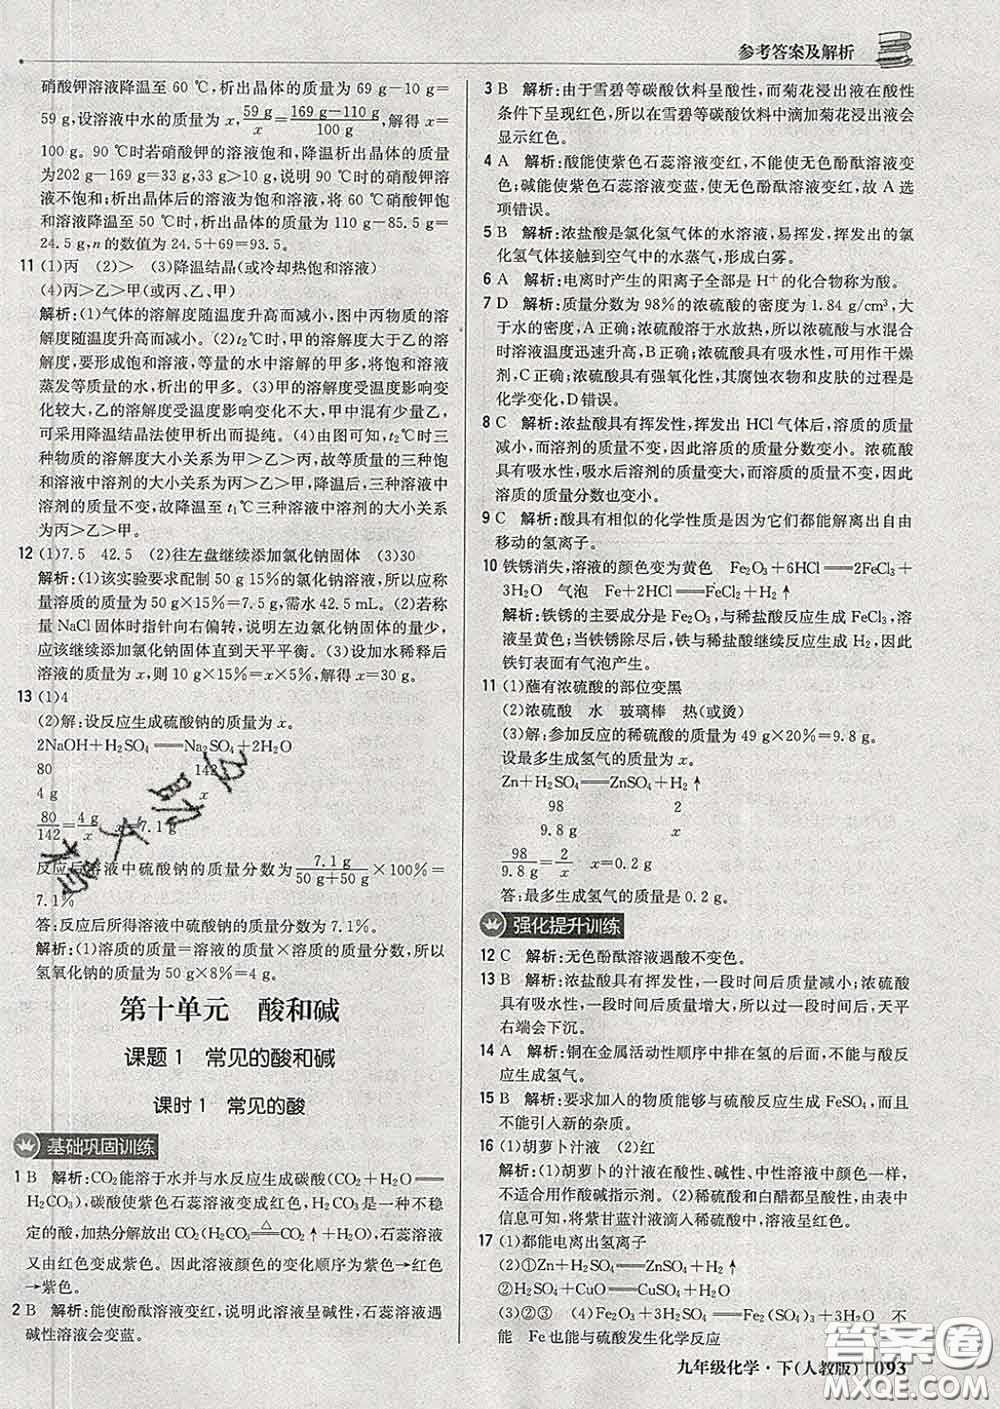 参考答案及解析
硝酸钾溶液降温至 60 ℃,析出晶体的质量为 69 g－10 g＝
59 g,设溶液中水的质量为 x,59 g/x＝(169 g－110 g)/100 g,解得 x＝
100 g。90 ℃时若硝酸钾的溶液饱和,降温析出晶体的质量
为202 g－169 g＝33 g,33 g＞10 g,说明 90 ℃时的硝酸钾溶
液不饱和;析出晶体后的溶液为饱和溶液,将 60 ℃硝酸钾饱
和溶液降温至 50 ℃时,析出晶体的质量为 110 g－85.5 g＝
24.5 g,n 的数值为 24.5＋69＝93.5。
11 (1)丙 (2)＞ (3)降温结晶(或冷却热饱和溶液)
(4)丙＞乙＞甲(或丙、乙、甲)
解析:(1)气体的溶解度随温度升高而减小,图中丙物质的溶
解度随温度升高而减小。(2)t₂℃时,甲的溶解度大于乙的溶
解度,要形成饱和溶液,等量的水中溶解的甲多,将饱和溶液
蒸发等质量的水,析出的甲多。(3)甲的溶解度受温度影响变
化较大,乙的溶解度受温度影响变化不大,甲中混有少量乙,
可采用降温结晶法使甲析出而提纯。(4)由图可知,t₂℃时三
种物质的溶解度大小关系为甲＞乙＞丙,故等质量的三种溶
液中溶剂的大小关系为丙＞乙＞甲,降温后,三种溶液中溶剂
中溶剂的质量不变,故降温至 t₁℃时三种溶液中溶剂的大小
关系为丙＞乙＞甲。
12 (1)7.5 42.5 (2)往左盘继续添加氯化钠固体 (3)30
解析:(1)该实验要求配制 50 g 15%的氯化钠溶液,所以应称
量溶质的质量为 50 g×15%＝7.5 g,需水 42.5 mL。(2)若称
量 NaCl 固体时指针向右偏转,说明左边氯化钠固体的量少,
应该继续添加氯化钠固体直到天平平衡。(3)设加水稀释后
溶液的质量为 x,则 10 g×15%＝x×5%,解得 x＝30 g。
13 (1)4
(2)解:设反应生成硫酸钠的质量为 x。
2NaOH＋H₂SO₄══Na₂SO₄＋2H₂O
80 142
4 g x
80/142＝4 g/x x＝7.1 g
反应后溶液中硫酸钠的质量分数为 7.1 g/(50 g＋50 g)×100%＝
7.1%
答:反应后所得溶液中硫酸钠的质量分数为 7.1%。
解析:(1)溶质的质量＝溶液的质量×溶质的质量分数,所以
氢氧化钠的质量为 50 g×8%＝4 g。
第十单元 酸和碱
课题 1 常见的酸和碱
课时 1 常见的酸
基础巩固训练
1 B 解析:CO₂能溶于水并与水反应生成碳酸(CO₂＋H₂O══
H₂CO₃),碳酸使紫色石蕊溶液变成红色,H₂CO₃是一种不稳
定的酸,加热分解放出 CO₂(H₂CO₃══△CO₂↑＋H₂O),石蕊溶液
又由红色变成紫色。因此溶液颜色的变化顺序为紫色→红色
→紫色。
2 B 解析:能使酚酞溶液变红,说明此溶液呈碱性,石蕊溶液遇
碱性溶液会变蓝。
3 B 解析:由于雪碧等碳酸饮料呈酸性,而菊花浸出液在酸性
条件下呈现红色,所以在雪碧等碳酸饮料中滴加菊花浸出液会
显示红色。
4 A 解析:酸能使紫色石蕊溶液变红,不能使无色酚酞溶液变
色;碱能使紫色石蕊溶液变蓝,使无色酚酞溶液变红,故 A 选
项错误。
5 B 解析:浓盐酸是氯化氢气体的水溶液,易挥发,挥发出的氯
化氢气体接触到空气中的水蒸气,形成白雾。
6 A 解析:电离时产生的阳离子全部是 H⁺的化合物称为酸。
7 D 解析:质量分数为 98%的浓硫酸的密度为 1.84 g/cm³,大
于水的密度,A 正确;浓硫酸溶于水放热,所以浓硫酸与水混合
时溶液温度迅速升高,B 正确;浓硫酸具有吸水性,可用作干燥
剂,C 正确;浓硫酸具有强氧化性,其腐蚀衣物和皮肤的过程是
化学变化,D 错误。
8 C 解析:浓盐酸具有挥发性,挥发出 HCl 气体后,溶质的质量
减小,而溶剂的质量不变,因此溶质的质量分数变小。浓硫酸
具有吸水性,吸水后溶剂的质量变大,而溶质的质量不变,因此
溶质的质量分数也变小。
9 C 解析:酸具有相似的化学性质是因为它们都能解离出自由
移动的氢离子。
10 铁锈消失,溶液的颜色变为黄色 Fe₂O₃＋6HCl══2FeCl₃＋
3H₂O 气泡 Fe＋2HCl══FeCl₂＋H₂↑
解析:铁锈的主要成分是 Fe₂O₃,与稀盐酸反应生成 FeCl₃,溶
液呈黄色;当铁锈除尽后,铁与稀盐酸继续反应生成 H₂,因此
铁钉表面有气泡产生。
11 (1)蘸有浓硫酸的部位变黑
(2)浓硫酸 水 玻璃棒 热(或烫)
(3)解:参加反应的稀硫酸的质量为 49 g×20%＝9.8 g。
设最多生成氢气的质量为 x。
Zn＋H₂SO₄══ZnSO₄＋H₂↑
98 2
9.8 g x
98/9.8 g＝2/x x＝0.2 g
答:最多生成氢气的质量是 0.2 g。
强化提升训练
12 C 解析:无色酚酞溶液遇酸不变色。
13 B 解析:浓盐酸具有挥发性,一段时间后质量减小,浓硫酸
具有吸水性,一段时间后质量增大,所以过一段时间后,天平
右端会下沉。
14 A 解析:铜在金属活动性顺序中排在氢的后面,不能与酸反
应生成氢气。
15 B 解析:要求加入的物质能够与硫酸反应生成 FeSO₄,而且
不能引入新的杂质。
16 (1)胡萝卜汁液 (2)红
解析:(1)胡萝卜的汁液在酸性、碱性、中性溶液中颜色一样,
不适合用作酸碱指示剂。(2)稀硫酸和白醋都呈酸性,由表中
信息可知,将紫甘蓝汁液滴入稀硫酸中,溶液呈红色。
17 (1)都能电离出氢离子
(2)①Zn＋H₂SO₄══ZnSO₄＋H₂↑
②H₂SO₄＋CuO══CuSO₄＋H₂O
(3)②③ (4)Fe₂O₃＋3H₂SO₄══Fe₂(SO₄)₃＋3H₂O 不
能 Fe 也能与硫酸发生化学反应
九年级化学·下(人教版) 093
答案圈
MXQE.COM